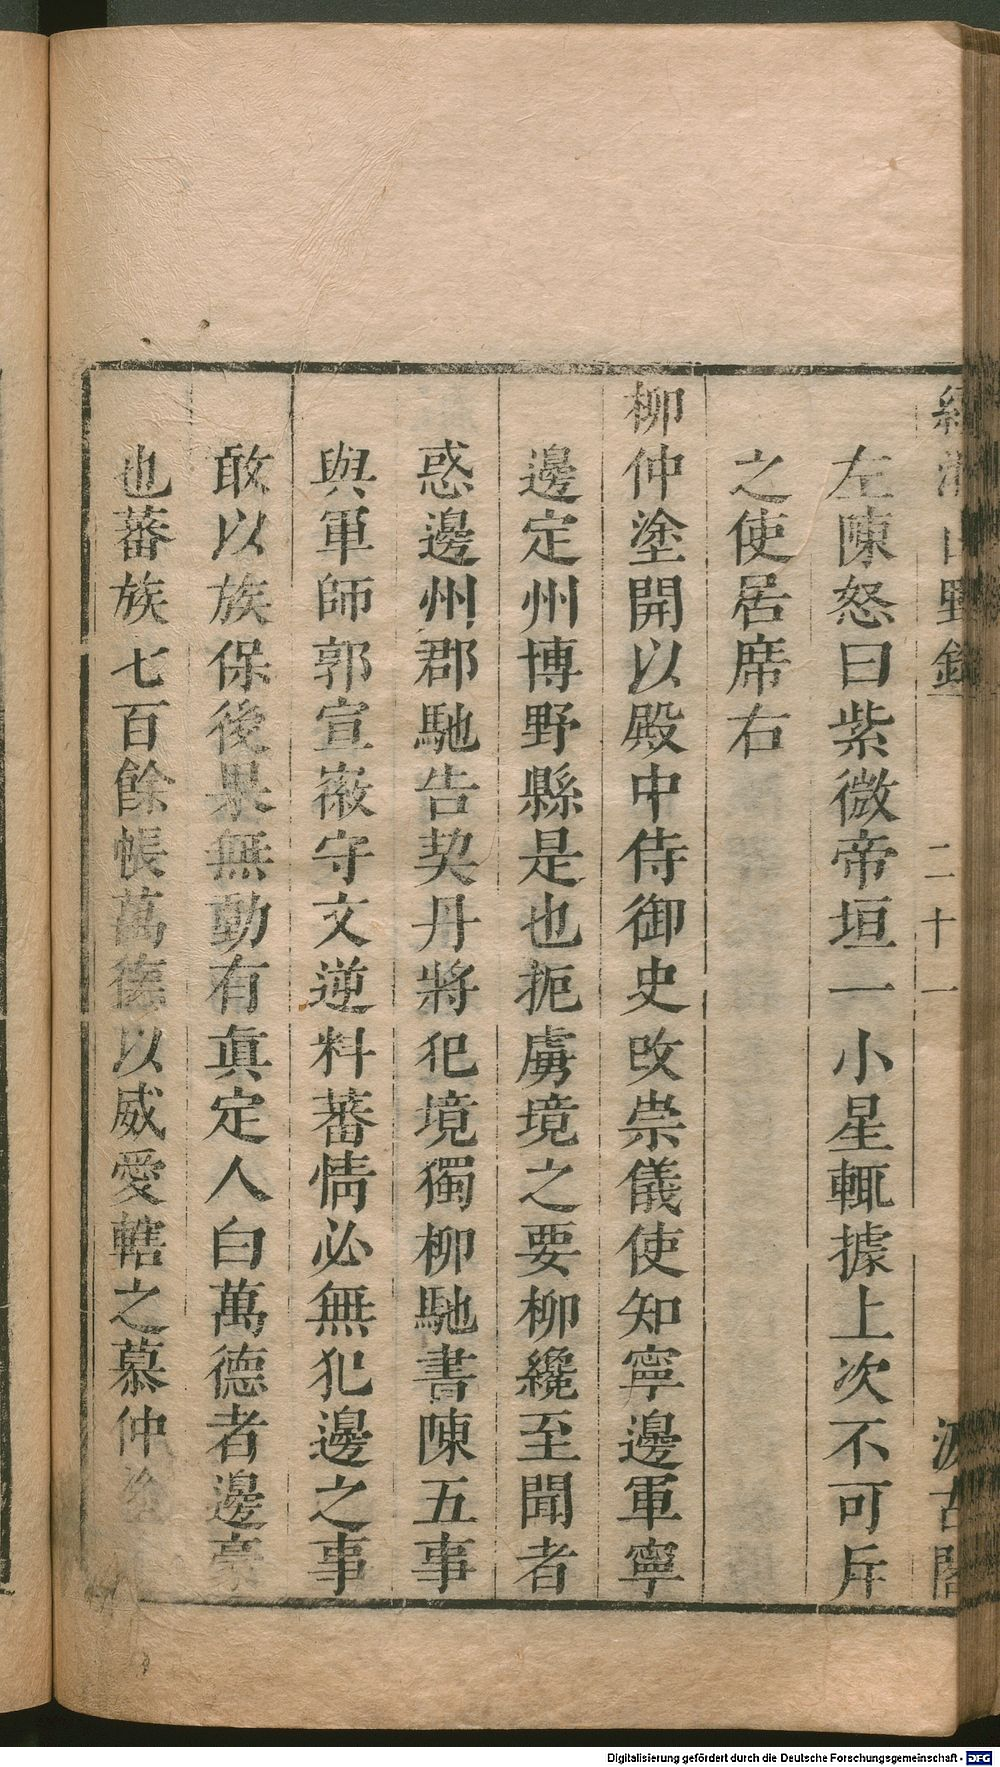 續湘山野錄 二十一 汲古閣
左陳怒曰紫微帝垣一小星輒據上次不可斥
之使居席右
柳仲塗開以殿中侍御史改崇儀使知寧邊軍寧
邊定州博野縣是也扼虜境之要柳纔至聞者
惑邊州郡馳告契丹將犯境獨柳馳書陳五事
與軍師郭宣㣲守文逆料蕃情必無犯邊之事
敢以族保後果無動有真定人白萬德者邊豪
也蕃族七百餘帳萬德以威愛轄之慕仲塗
Digitalisierung gefördert durch die Deutsche Forschungsgemeinschaft - DFG